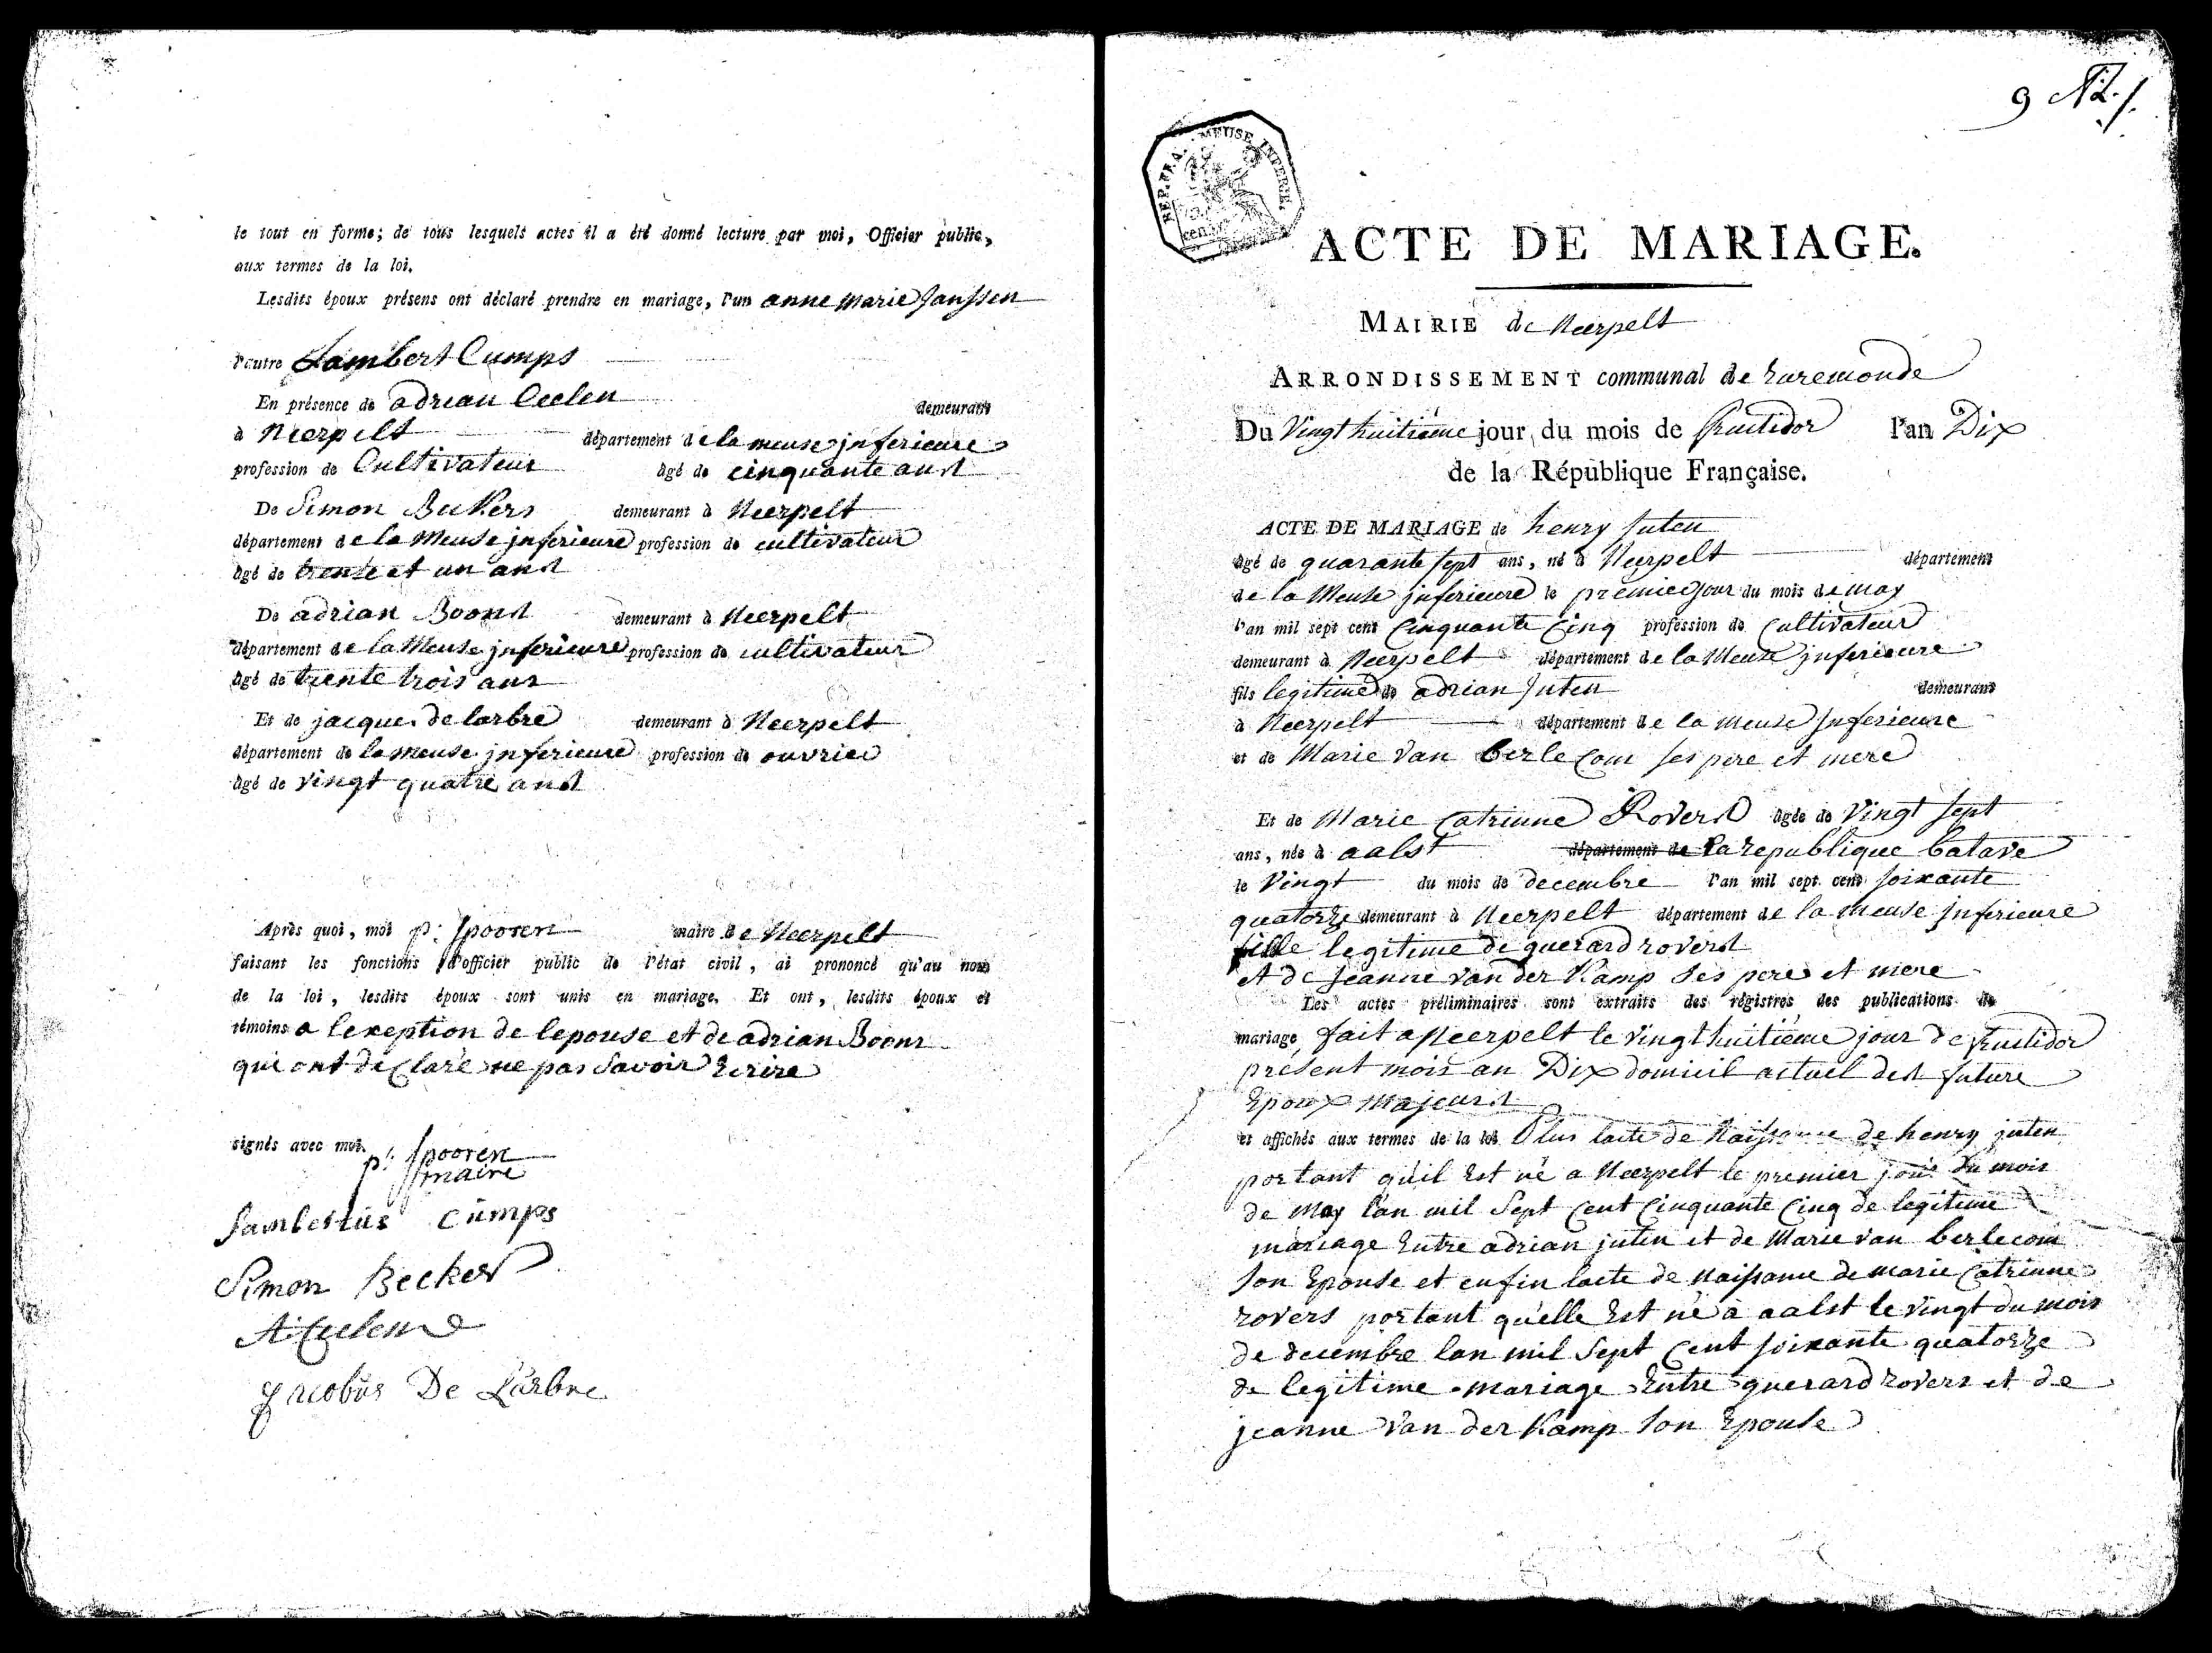 le tout en forme; de tous lesquels actes il a été donné lecture par moi, Officier public,
aux termes de la loi.
Lesdits époux présens ont déclaré prendre en mariage, l'un anne marie Janssen
l'autre Lambert Cumps
En présence de adrian Ceelen demeurant
à Neerpelt département de la meuse inferieure
profession de Cultivateur âgé de cinquante ans
De Simon Beckers demeurant à Neerpelt
département de la Meuse inferieure profession de cultivateur
âgé de trente et un ans
De adrian Boons demeurant à Neerpelt
département de la Meuse inferieure profession de cultivateur
âgé de trente trois ans
Et de jacque de larbre demeurant à Neerpelt
département de la meuse inferieure profession de ouvrier
âgé de vingt quatre ans
Après quoi, moi p: Spooren maire de Neerpelt
faisant les fonctions d'officier public de l'état civil, ai prononcé qu'au nom
de la loi, lesdits époux sont unis en mariage. Et ont, lesdits époux et
témoins a lexeption de lepouse et de adrian Boons
qui ont declaré ne pas Savoir Ecrire
signés avec moi.
p: Spooren
maire
Lambertus Cumps
Simon Becker
A: Ceelen
Jacobus De Larbre
9
REP. FRA. MEUSE INFERIE.
ACTE DE MARIAGE.
MAIRIE de Neerpelt
ARRONDISSEMENT communal de Ruremonde
Du Vingt huitième jour du mois de fructidor l'an Dix
de la République Française.
ACTE DE MARIAGE de henry juten
âgé de quarante sept ans, né à Neerpelt département
de la Meuse inferieure le premier jour du mois de may
l'an mil sept cent Cinquante Cinq profession de Cultivateur
demeurant à Neerpelt département de la Meuse inferieure
fils legitime de adrian juten demeurant
à Neerpelt département de la meuse inferieure
et de Marie van berlecom ses pere et mere
Et de Marie Catrinne Rovers âgée de Vingt sept
ans, née à aalst département de La republique batave
le Vingt du mois de decembre l'an mil sept cent soixante
quatorze demeurant à Neerpelt département de la meuse inferieure
fille legitime de guerard rovers
et de jeanne van der Kamp ses pere et mere
Les actes préliminaires sont extraits des régistres des publications de
mariage, fait a Neerpelt le vingt huitieme jour de fructidor
present mois an Dix domicil actuel des future
Epoux majeurs
et affichés aux termes de la loi Plus lacte de Naissance de henry juten
portant qu'il Est né a Neerpelt le premier jour du mois
de may l'an mil Sept Cent Cinquante Cinq de legitime
mariage Entre adrian juten et de Marie van berlecom
son Epouse et enfin lacte de Naissance de marie Catrinne
rovers portant qu'elle Est né à aalst le vingt du mois
de decembre lan mil Sept Cent soixante quatorze
de legitime mariage Entre guerard rovers et de
jeanne van der Kamp son Epouse